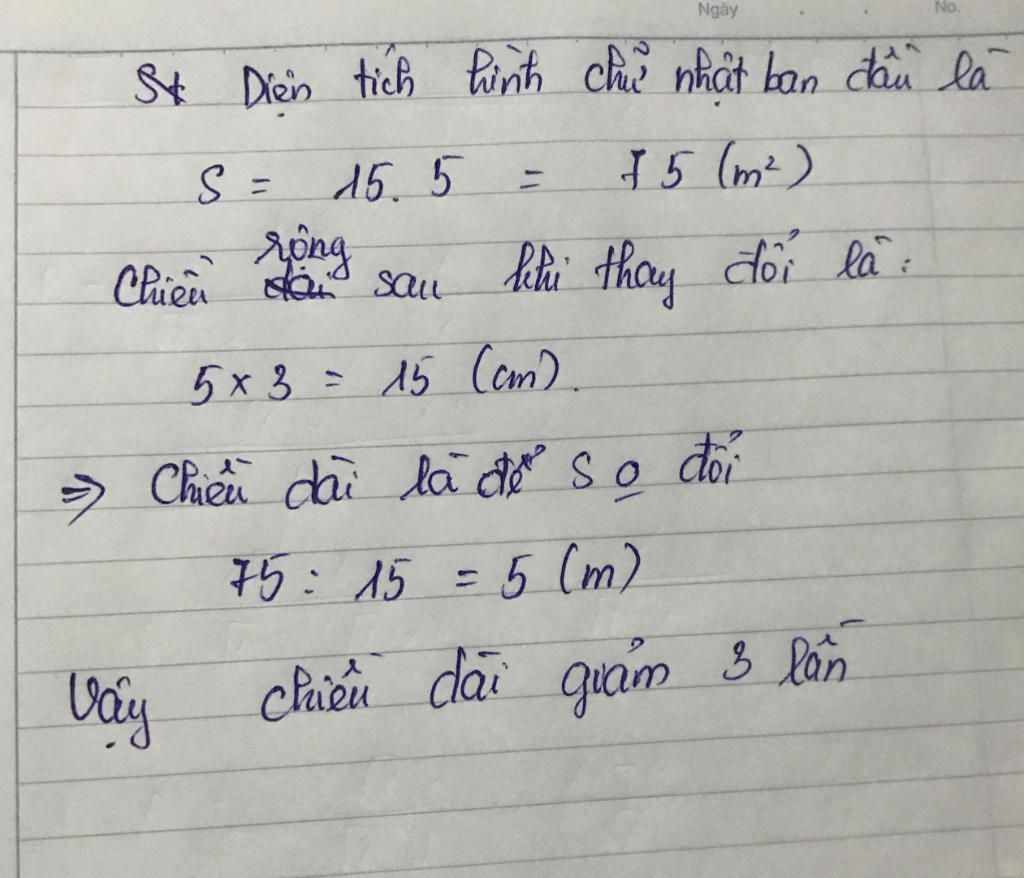 Ngày . . No.
St Diện tích hình chữ nhật ban đầu là
S = 15. 5 = 75 (m²)
rộng
Chiều dài sau khi thay đổi là:
5 x 3 = 15 (cm).
=> Chiều dài là để S o đổi
75 : 15 = 5 (m)
Vậy chiều dài giảm 3 lần